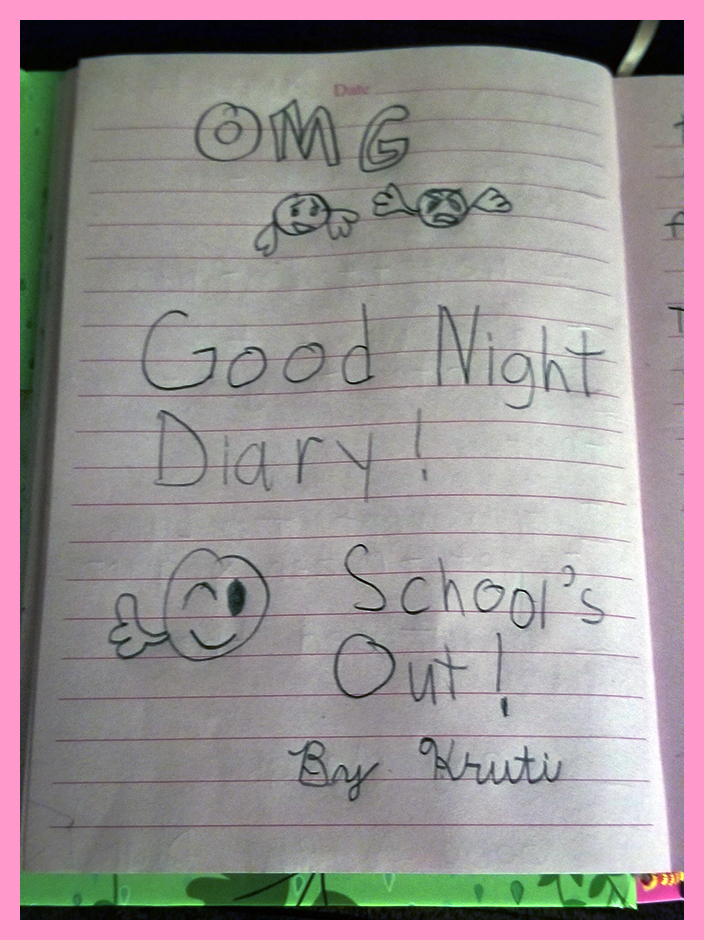 Date
OMG
Good Night
Diary!
School's
Out!
By Kruti